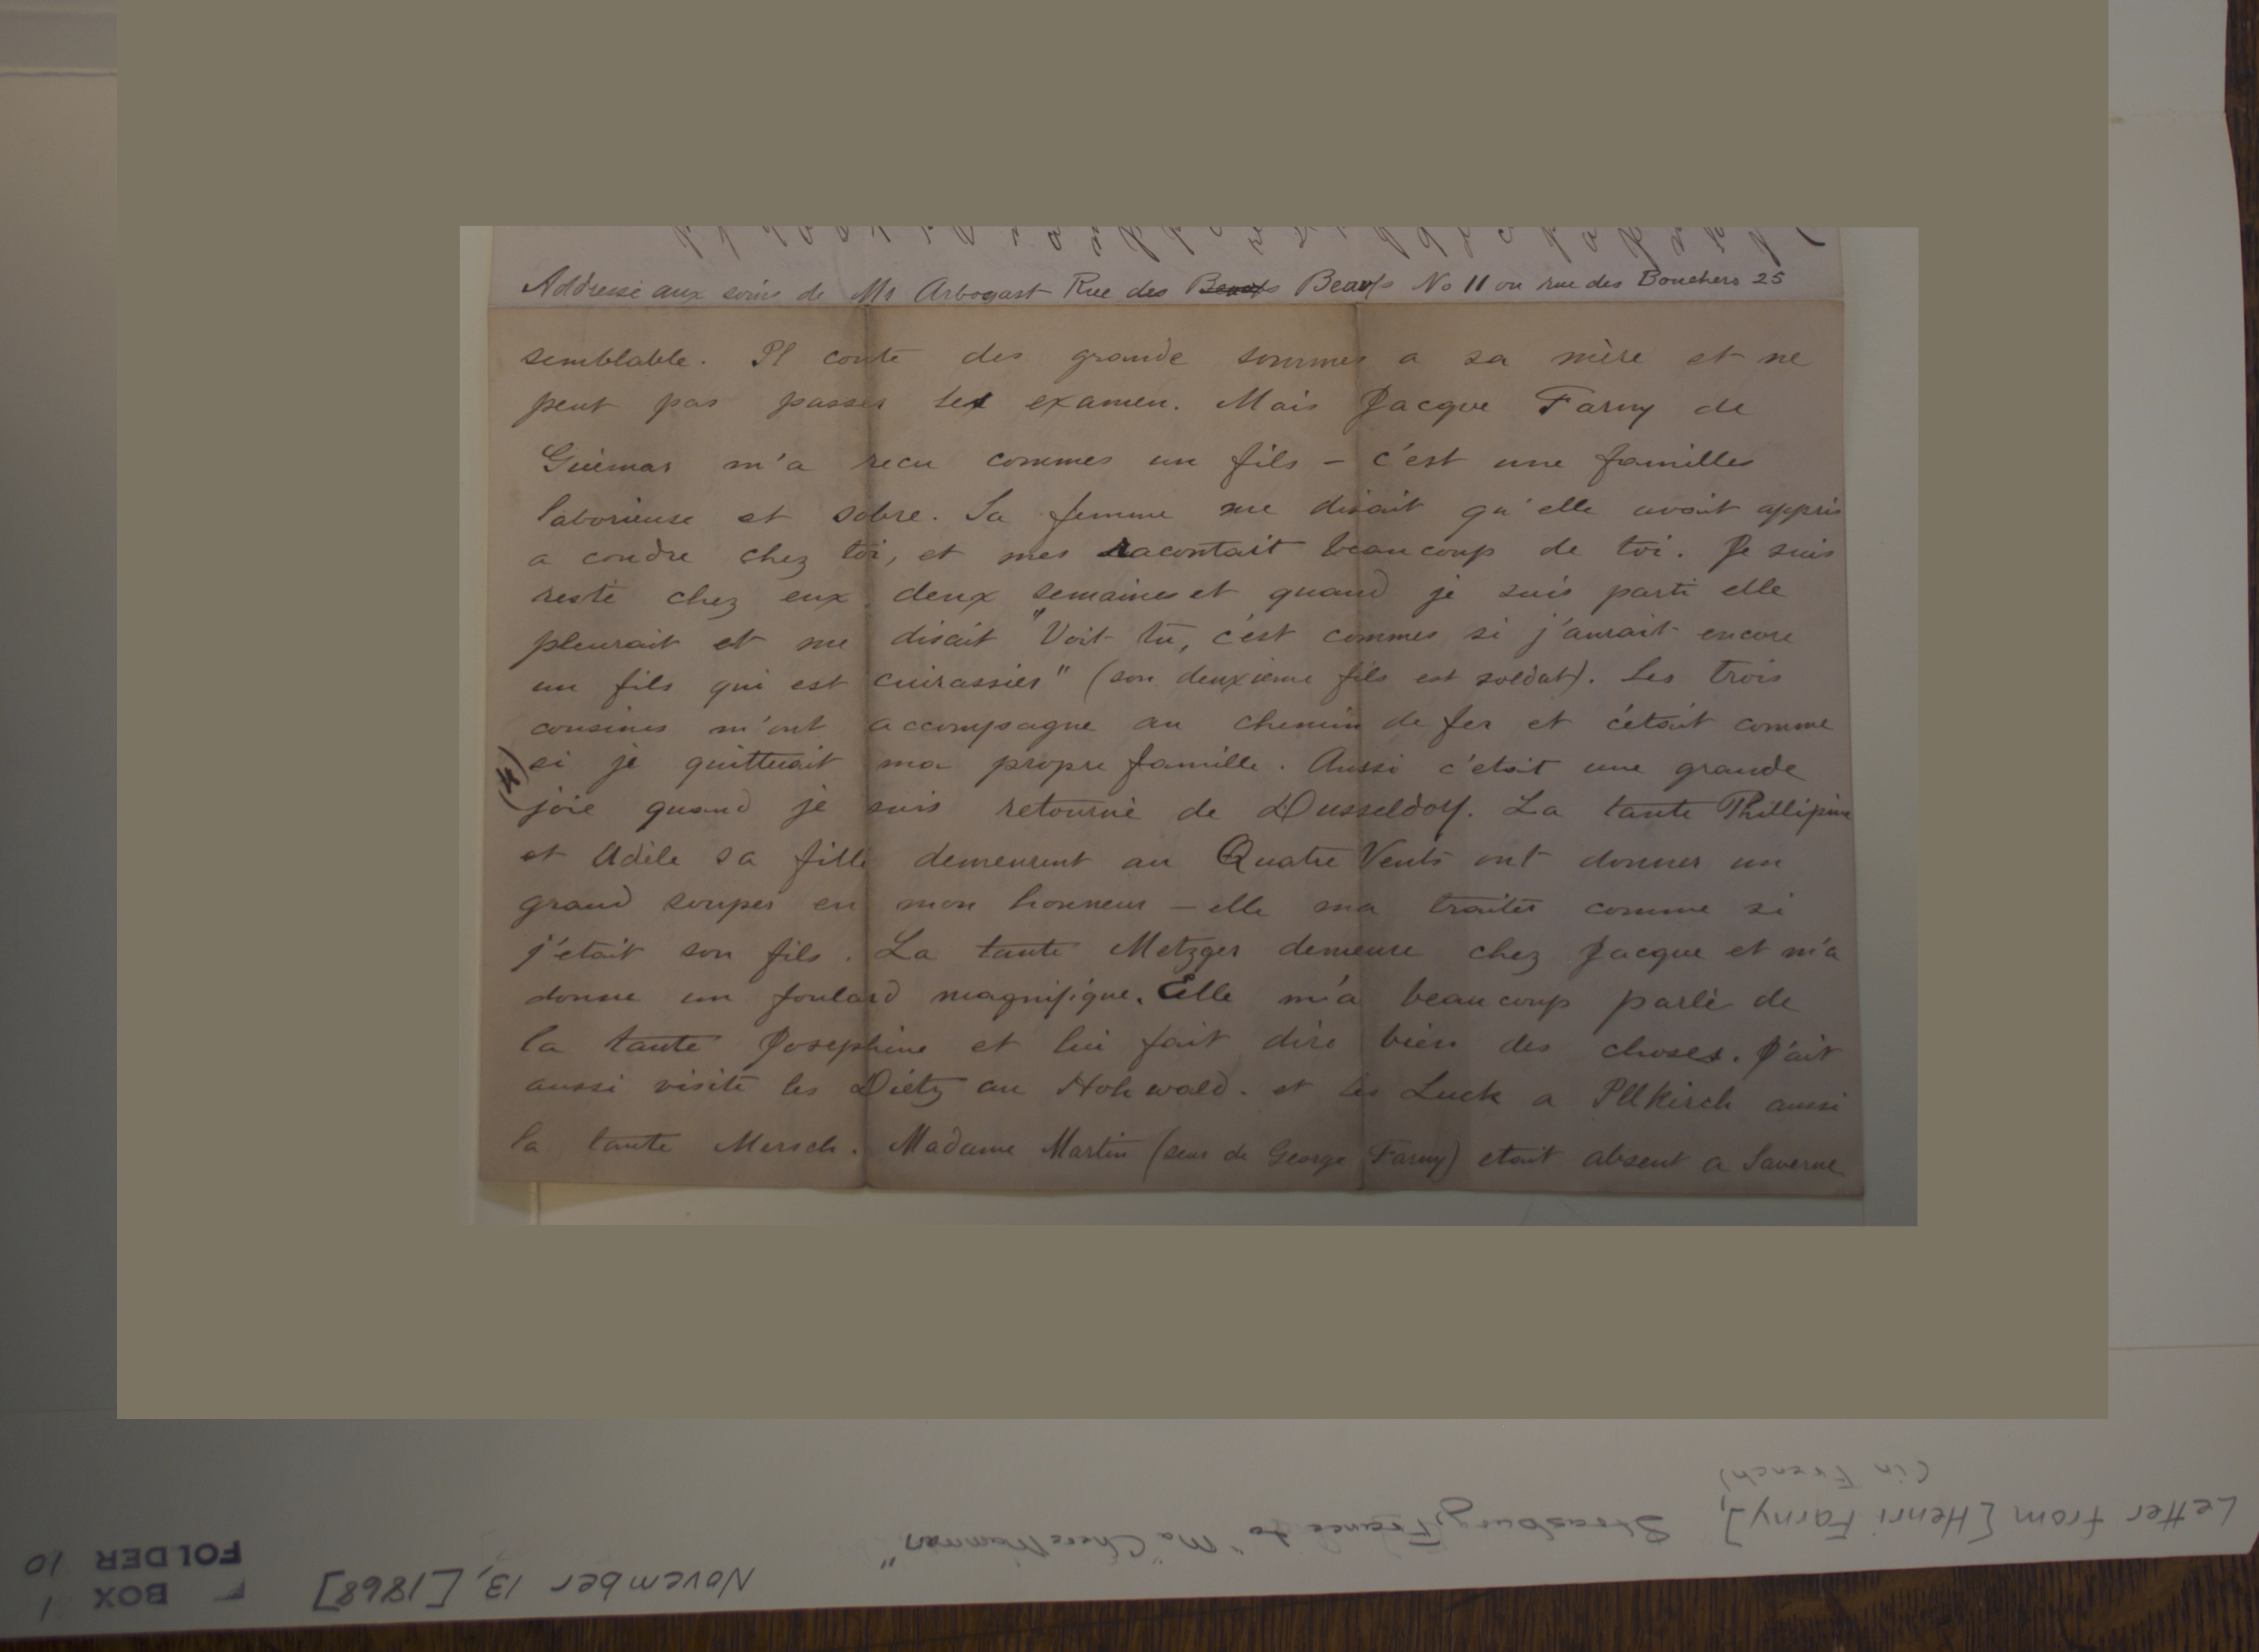 Addresse aux soins de Mr Arbogast Rue des Beaufs Beaufs No 11 ou rue des Bouchers 25
semblable. Il coute des grande sommes a sa mère et ne
peut pas passer les examen. Mais Jacque Farny de
Guémar m'a recu commes un fils – c'est une familles
laborieuse et sobre. Sa femme me disait qu'elle avait appris
a coudre chez toi, et mes racontait beaucoup de toi. Je suis
resté chez eux deux semaines et quand je suis parti elle
pleurait et me disait "Voit tu, c'est commes si j'aurait encore
un fils qui est cuirassier" (son deuxieme fils est soldat). Les trois
cousines m'ont accompagne au chemin de fer et c'étoit comme
si je quitterait ma propre famille. Aussi c'etoit une grande
joie quand je suis retourné de Dusseldorf. La tante Phillipine
et Adèle sa fille demeurent au Quatre Vents ont donner un
grand souper en mon honneur – elle ma traiter comme si
j'etait son fils. La tante Metzger demeure chez Jacque et m'a
donne un foulard magnifique. Elle m'a beaucoup parlé de
la tante Josephine et lui fait dire bien des choses. J'ait
aussi visité les Diétz au Hohwald. et les Luck a Illkirch aussi
la tante Mersch. Madame Martin (seur de George Farny) etait absent a Saverne
Letter from [Henri Farny], Strasbourg, France to "Ma Chere Maman"
(in French)
November 13, [1868]
BOX 1
FOLDER 10